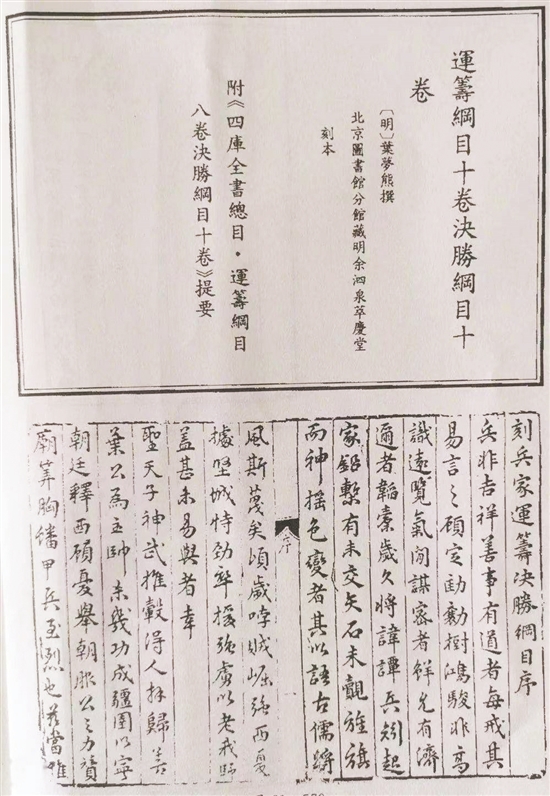 運籌綱目十卷決勝綱目十
卷
〔明〕葉夢熊撰
北京圖書館分館藏明余泗泉萃慶堂
刻本
附《四庫全書總目·運籌綱目
八卷決勝綱目十卷》提要
刻兵家運籌決勝綱目序
兵非吉祥善事有道者每戒其
易言之顧定勛勷樹鴻駿非高
識遠覽氣閎謀密者鮮允有濟
邇者韜櫜歲久將諱譚兵矧起
家鉛槧有未交矢石未覿旌旗
而神搖色變者其以語古儒將
風斯蔑矣頃歲哱賊崛強西夏
據堅城恃勁卒援強虜以老我師
蓋甚未易與者幸
聖天子神武推轂得人拜歸善
葉公為主帥未幾功成疆圉以寧
朝廷釋西顧憂舉朝服公之力贊
廟筭胸蟠甲兵至烈也茲當惟
序